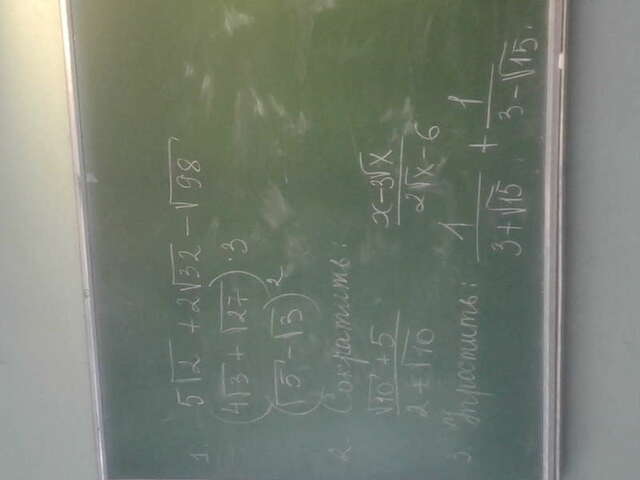 1. 5√2 + 2√32 − √98
(4√3 + √27) · 3
(√5 − √3)²
2. Сократить:
(√10 + 5)/(2 + √10) (x − 3√x)/(2√x − 6)
3. Упростить: 1/(3 + √15) + 1/(3 − √15).